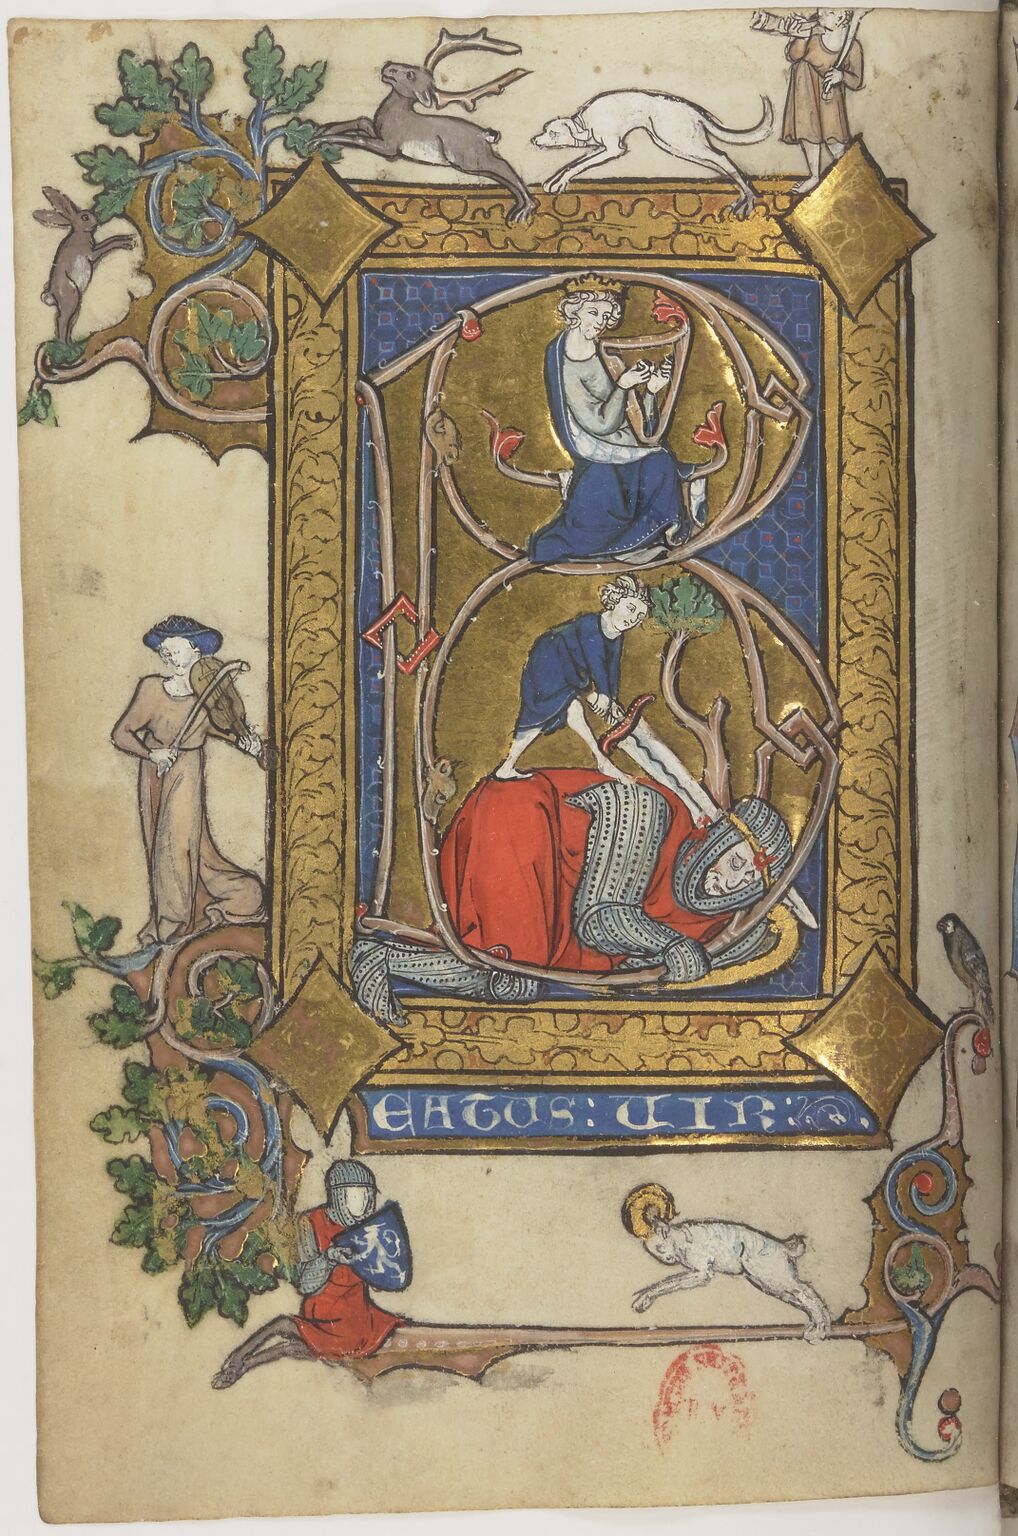 B
EATUS : UIR :